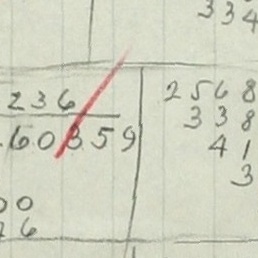 334
236
60859
00
26
2568
338
41
3